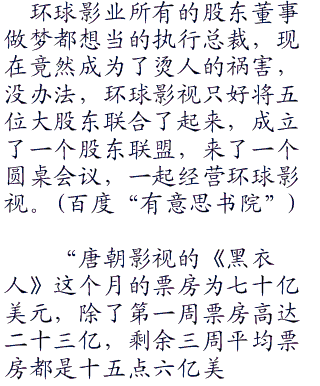 环球影业所有的股东董事
做梦都想当的执行总裁，现
在竟然成为了烫人的祸害，
没办法，环球影视只好将五
位大股东联合了起来，成立
了一个股东联盟，来了一个
圆桌会议，一起经营环球影
视。(百度“有意思书院”)
“唐朝影视的《黑衣
人》这个月的票房为七十亿
美元，除了第一周票房高达
二十三亿，剩余三周平均票
房都是十五点六亿美